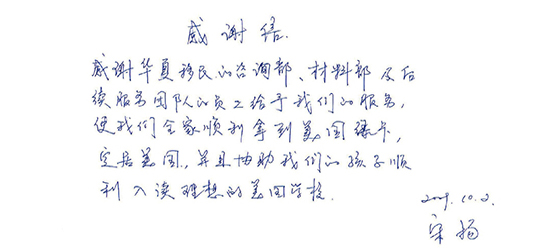 感谢信.
感谢华夏移民的咨询部、材料部及后
续服务团队的员工给予我们的服务,
使我们全家顺利拿到美国绿卡,
定居美国,并且协助我们的孩子顺
利入读理想的美国学校.
2009.10.2.
宋杨